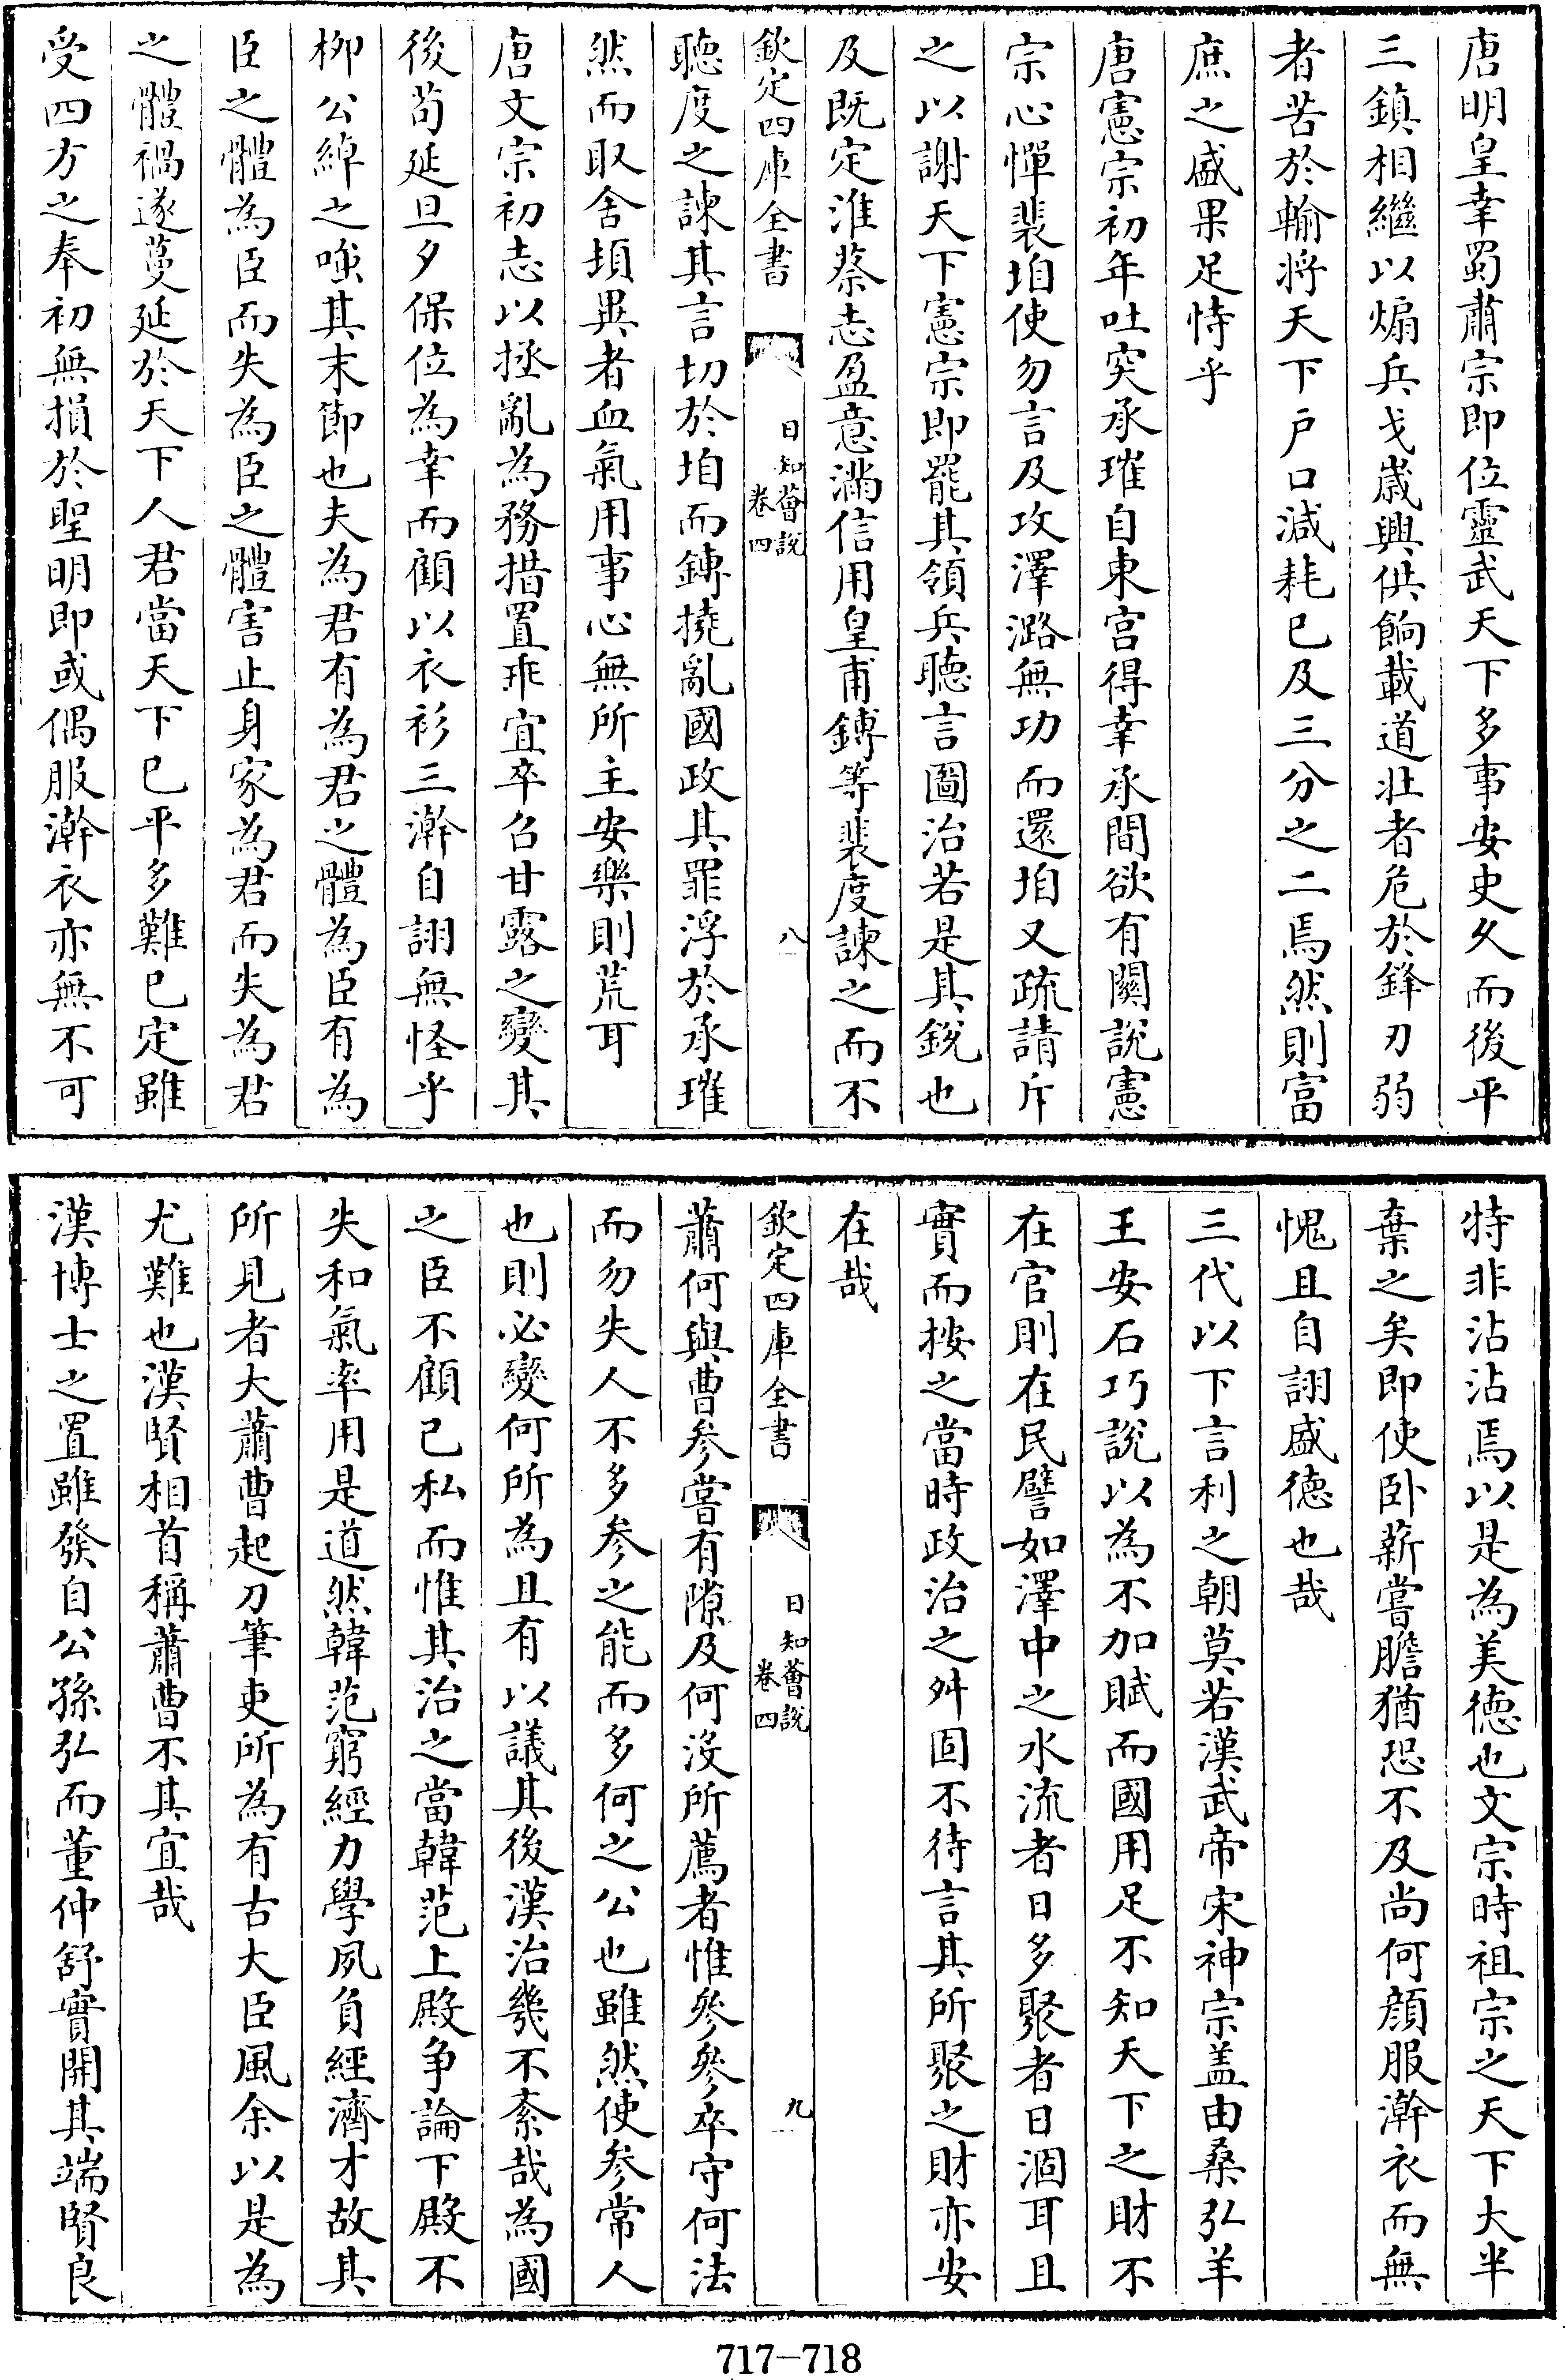 唐明皇幸蜀肅宗即位靈武天下多事安史久而後平
三鎮相繼以煽兵戈歲興供餉載道壯者危於鋒刃弱
者苦於輸將天下戶口減耗已及三分之二焉然則富
庶之盛果足恃乎
唐憲宗初年吐突承璀自東宮得幸承間欲有關說憲
宗心憚裴垍使勿言及攻澤潞無功而還垍又疏請斥
之以謝天下憲宗即罷其領兵聽言圖治若是其銳也
及既定淮蔡志盈意滿信用皇甫鎛等裴度諫之而不
欽定四庫全書
日知薈說
卷四
八
聽度之諫其言切於垍而鎛撓亂國政其罪浮於承璀
然而取舍頓異者血氣用事心無所主安樂則荒耳
唐文宗初志以拯亂為務措置乖宜卒召甘露之變其
後苟延旦夕保位為幸而顧以衣衫三澣自詡無怪乎
柳公綽之嗤其末節也夫為君有為君之體為臣有為
臣之體為臣而失為臣之體害止身家為君而失為君
之體禍遂蔓延於天下人君當天下已平多難已定雖
受四方之奉初無損於聖明即或偶服澣衣亦無不可
特非沾沾焉以是為美德也文宗時祖宗之天下大半
棄之矣即使卧薪嘗膽猶恐不及尚何顏服澣衣而無
愧且自詡盛德也哉
三代以下言利之朝莫若漢武帝宋神宗盖由桑弘羊
王安石巧說以為不加賦而國用足不知天下之財不
在官則在民譬如澤中之水流者日多聚者日涸耳且
實而按之當時政治之舛固不待言其所聚之財亦安
在哉
欽定四庫全書
日知薈說
卷四
九
蕭何與曹參嘗有隙及何沒所薦者惟參參卒守何法
而勿失人不多參之能而多何之公也雖然使參常人
也則必變何所為且有以議其後漢治幾不紊哉為國
之臣不顧己私而惟其治之當韓范上殿爭論下殿不
失和氣率用是道然韓范窮經力學夙負經濟才故其
所見者大蕭曹起刀筆吏所為有古大臣風余以是為
尤難也漢賢相首稱蕭曹不其宜哉
漢博士之置雖發自公孫弘而董仲舒實開其端賢良
717-718